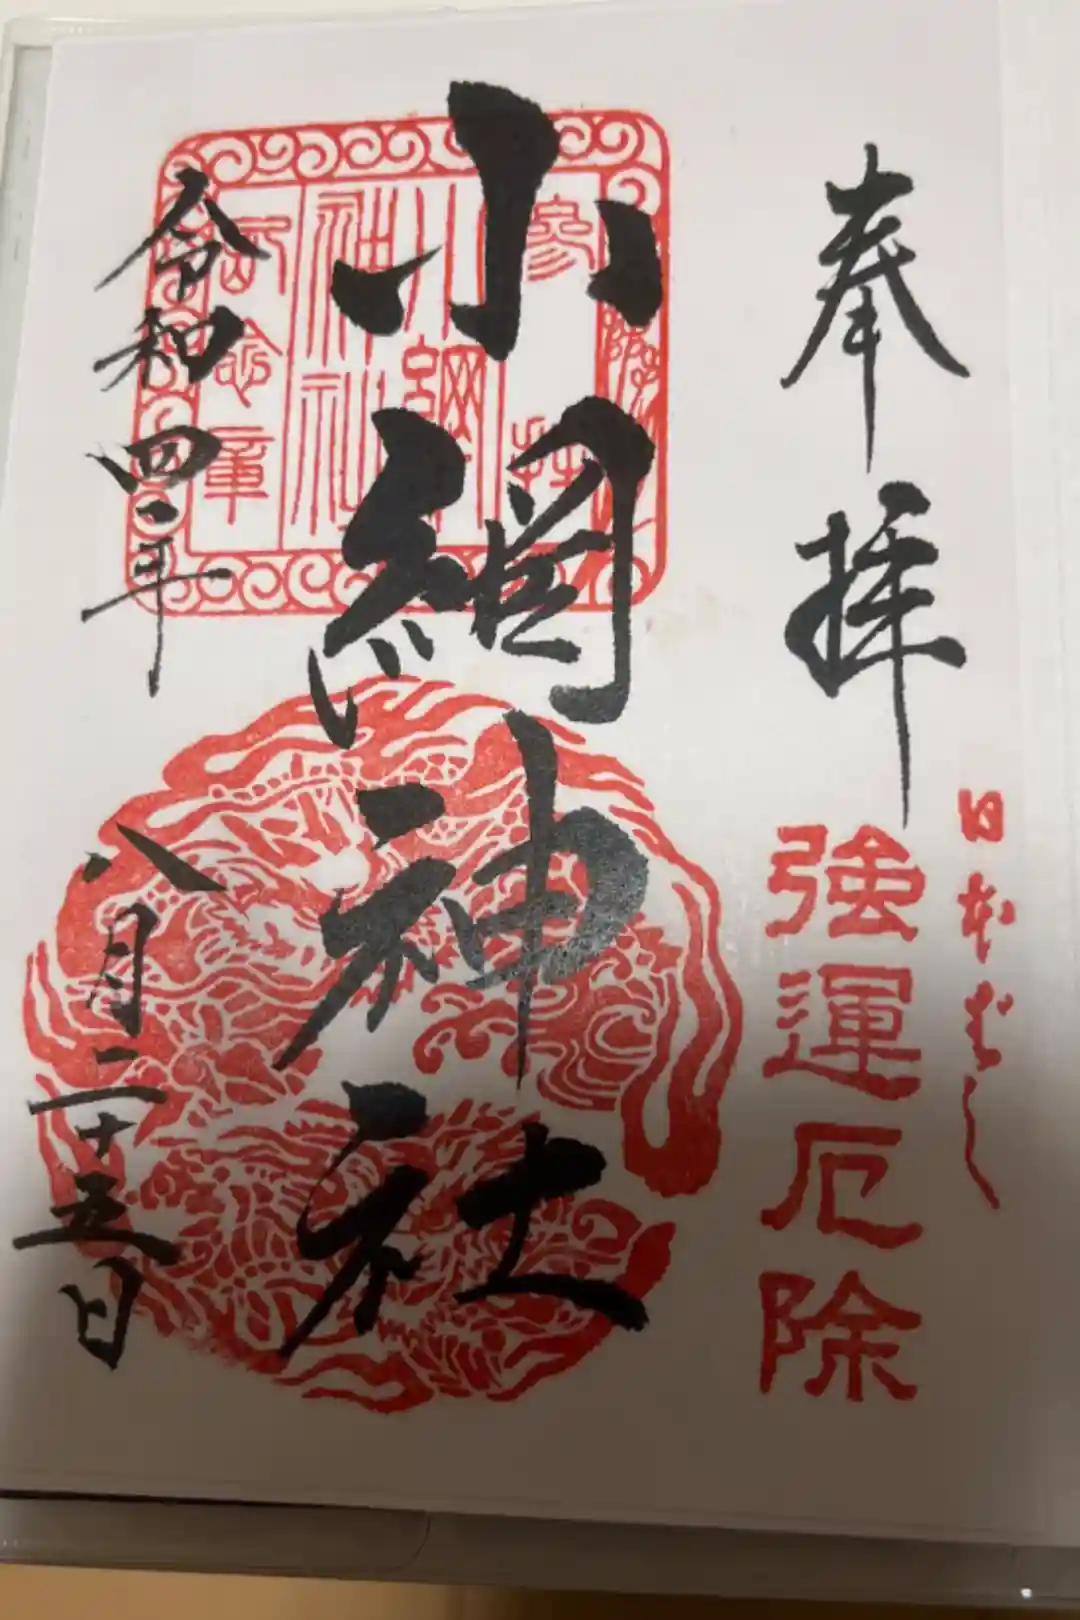 奉拝
日本ばし
強運厄除
小網神社
参拝
小網神社
記念章
令和四年
八月二十五日